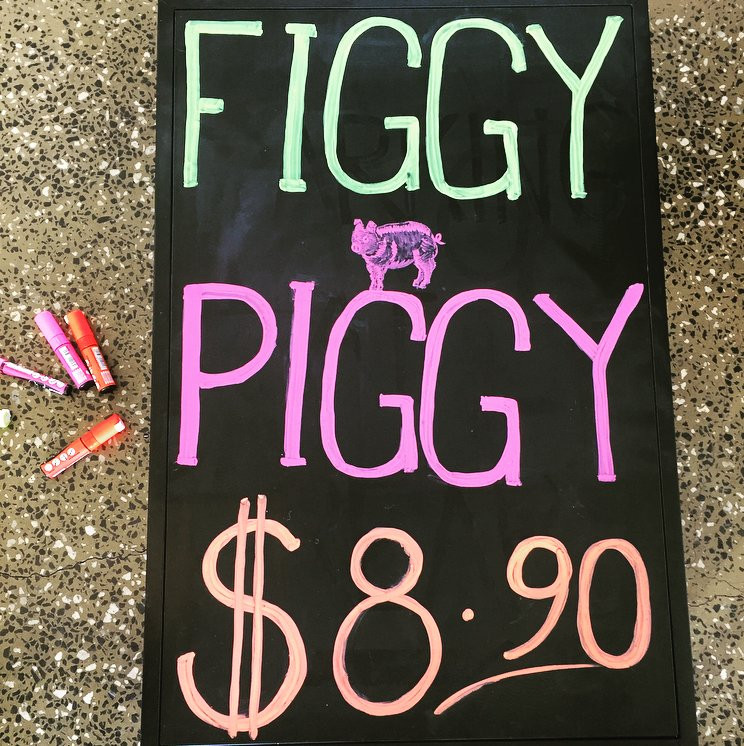 FIGGY
PIGGY
$8.90